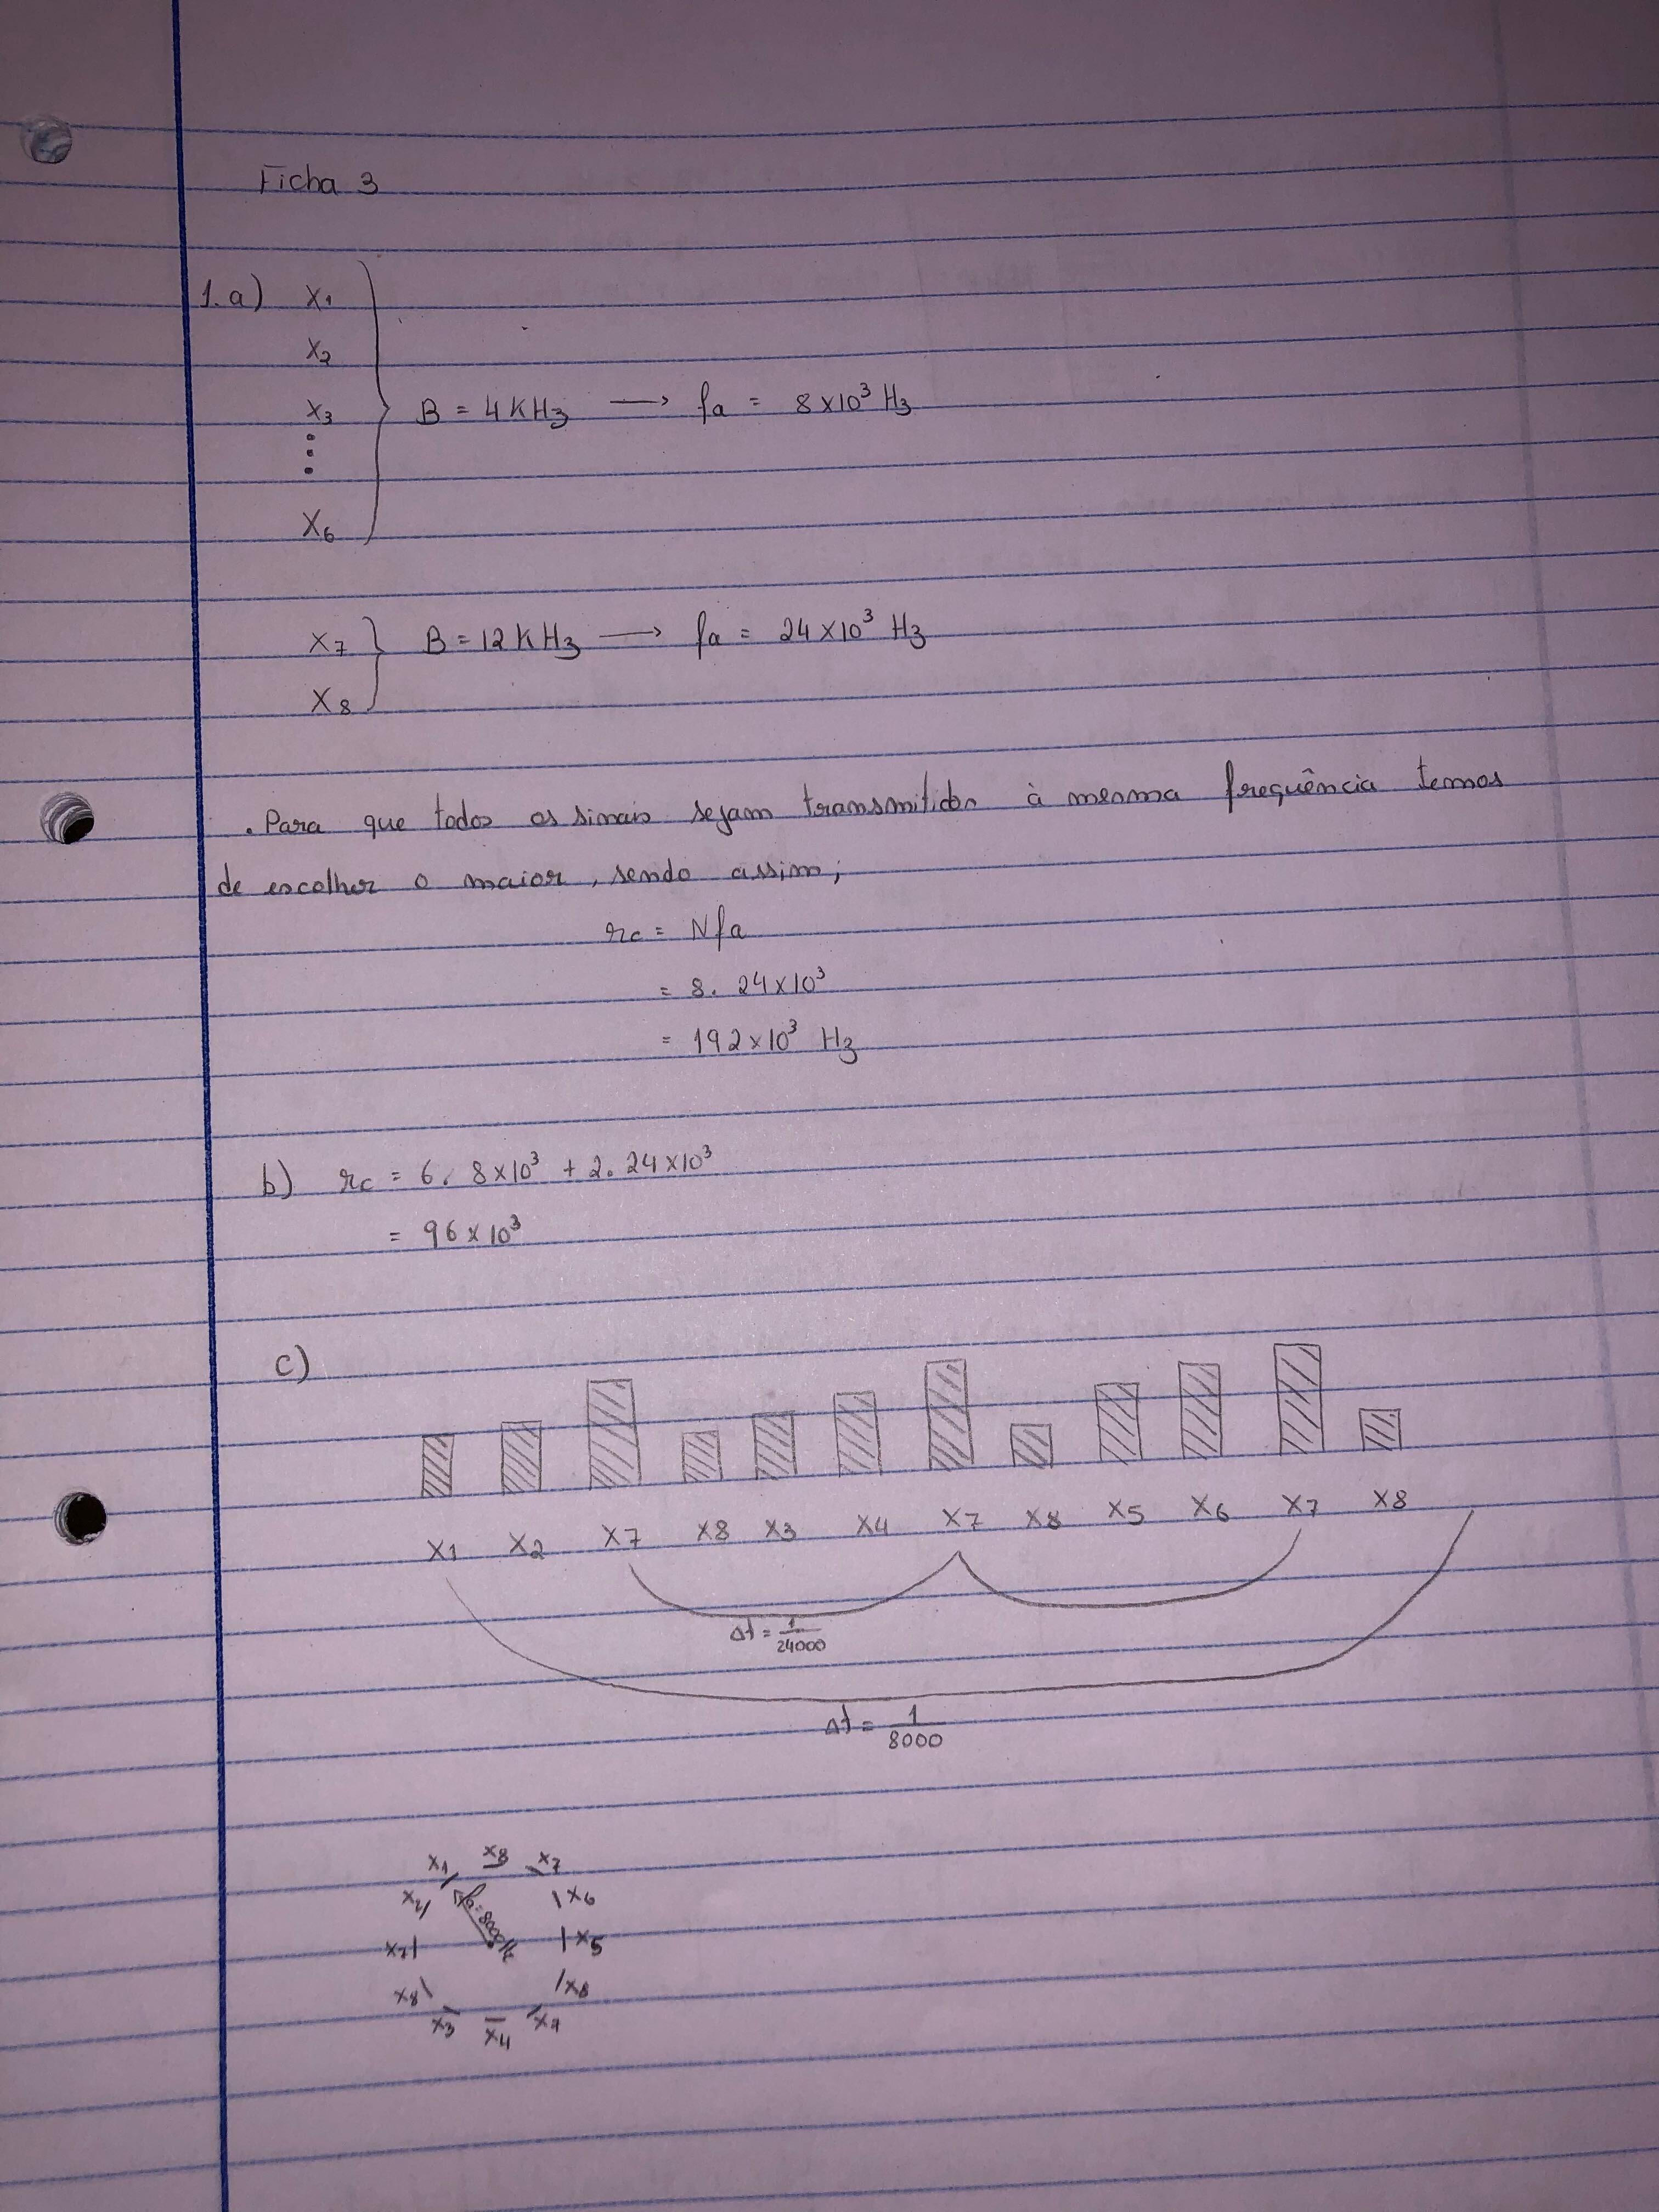 Ficha 3
1.a) X1
X2
X3
B = 4 KHz → fa = 8×10³ Hz
⋮
X6
X7
B = 12 KHz → fa = 24×10³ Hz
X8
. Para que todos os sinais sejam transmitidos à mesma frequência temos
de escolher o maior, sendo assim;
rc = Nfa
= 8. 24×10³
= 192×10³ Hz
b) rc = 6. 8×10³ + 2. 24×10³
= 96×10³
c)
X1 X2 X7 X8 X3 X4 X7 X8 X5 X6 X7 X8
Δt = 1/24000
Δt = 1/8000
X1 X8 X7
X2 X6
X7 X5
X8 X8
X3 X4 X7